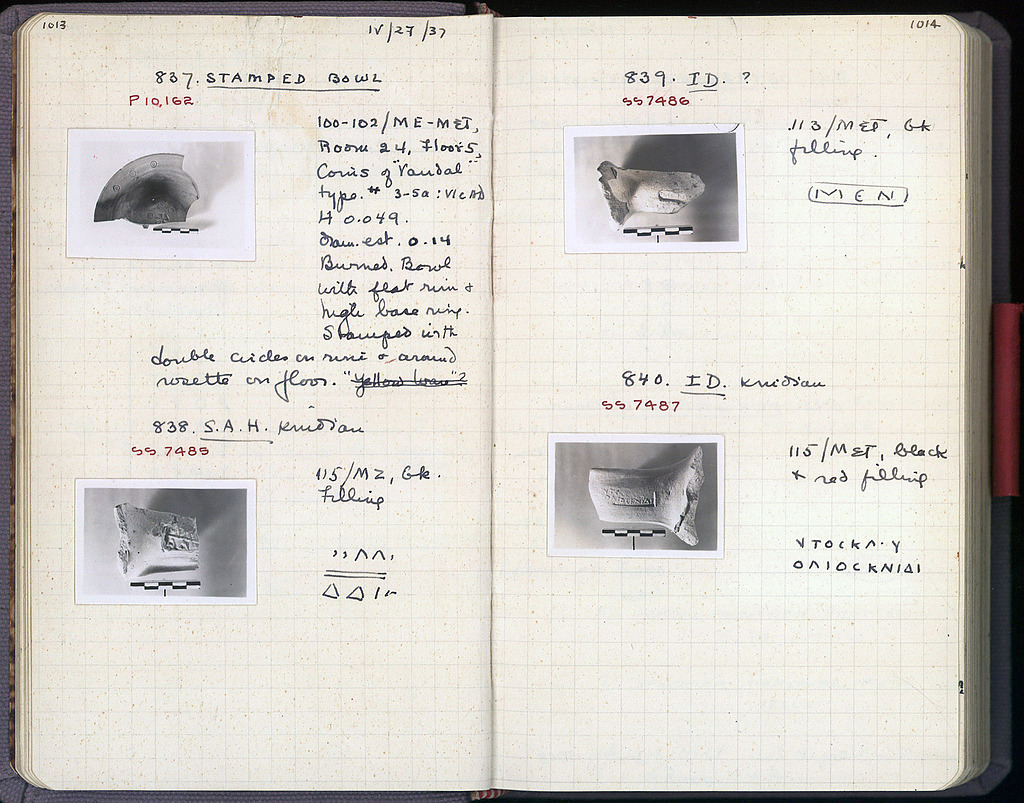 1013
IV/27/37
837. STAMPED BOWL
P 10,162
100-102/ME-MET,
Room 24, Floor 5,
Coins of "Vandal"
type. # 3-5a: VI c AD
H 0.049.
diam. est. 0.14
Burned. Bowl
with flat rim &
high base ring.
Stamped with
double circles on rim & around
rosette on floor. "Yellow Ware"?
838. S.A.H. Knidian
SS 7485
115/MZ, Gk.
Filling
ΔΔ
1014
839. ID. ?
SS 7486
113/MET, Gk
filling.
MEN
840. ID. Knidian
SS 7487
115/MET, black
& red filling
ΥΤΟCΚΛ·Υ
ΟΛΙΟCΚΝΙΔΙ